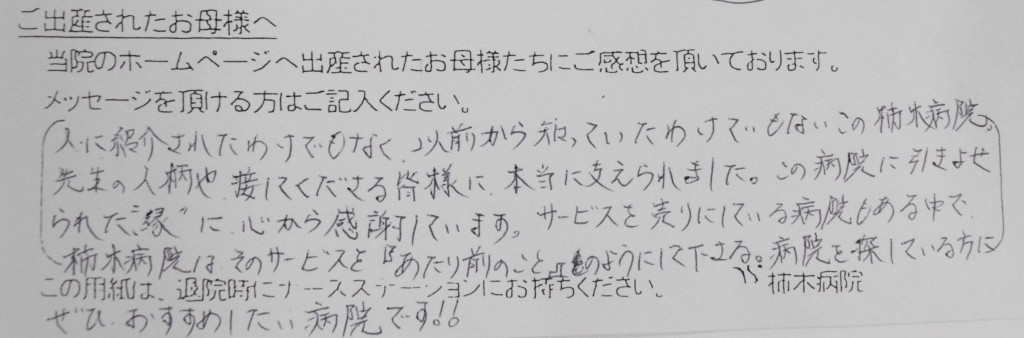 ご出産されたお母様へ
当院のホームページへ出産されたお母様たちにご感想を頂いております。
メッセージを頂ける方はご記入ください。
人に紹介されたわけでもなく、以前から知っていたわけでもないこの柿木病院。
先生の人柄や接してくださる皆様に、本当に支えられました。この病院に引きよせ
られた”縁”に心から感謝しています。サービスを売りにしている病院もある中で
柿木病院はそのサービスを『あたり前のこと』のようにして下さる。病院を探している方に
この用紙は、退院時にナースステーションにお持ちください。 柿木病院
ぜひ、おすすめしたい病院です!!